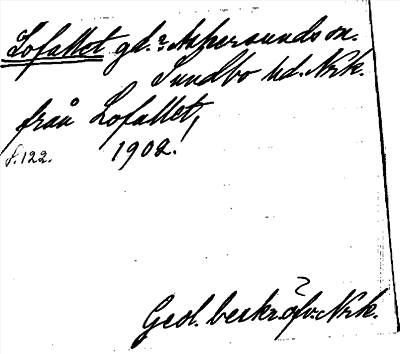 Lofallet gd. i Askersunds sn.
Sundbo hd. Nrk.
från Lofallet,
s. 122. 1902.
Geol. beskr. öfv. Nrk.